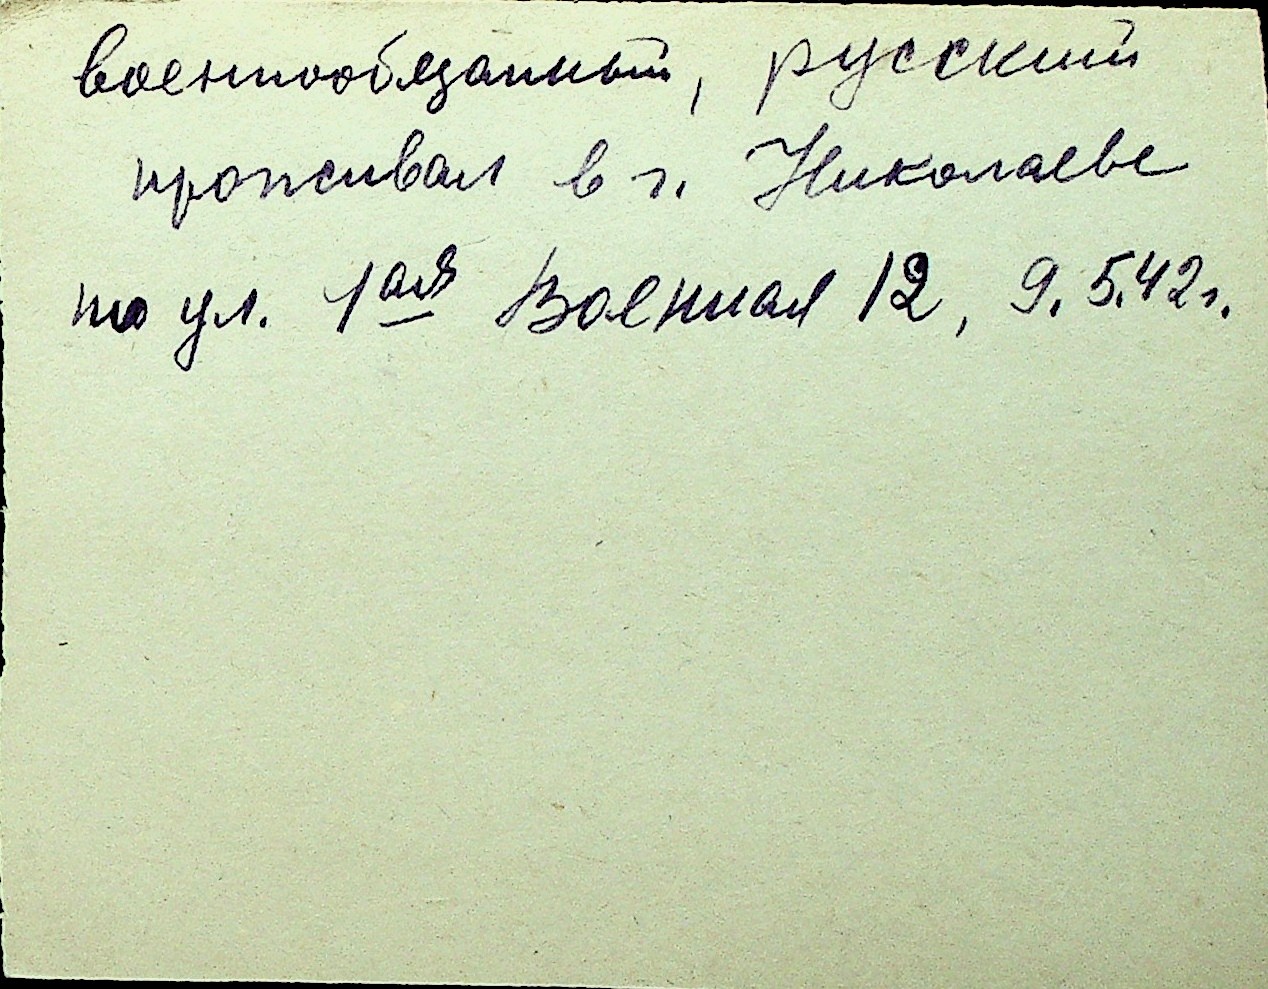 военнообязанный, русский
проживал в г. Николаеве
по ул. 1ая Военная 12, 9.5.42г.